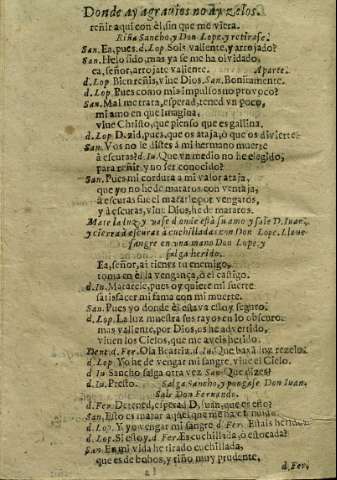 Donde ay agrauios no ay zelos.
reñir aqui con èl, sin que me viera.
Riña Sancho, y Don Lope, y retirase.
San. Ea, pues. d. Lop. Sois valiente, y arrojado?
San. Helo sido, mas ya se me ha olvidado,
ea, señor, arrojate valiente. Aparte.
d. Lop. Bien reñis, viue Dios. San. Bonitamente.
d. Lop. Pues como mis impulsos no prouoco?
San. Mal me trata, esperad, tened vn poco,
mi amo en que imagina,
viue Christo, que pienso que es gallina.
d. Lop. Dezid, pues, que os ataja, ò que os divierte?
San. Vos no le distes à mi hermano muerte
à escuras? d. Iu. Que vn medio no he elegido,
para reñir, y no ser conocido?
San. Pues mi cordura à mi valor ataja,
que yo no he de mataros con ventaja,
à escuras fue el matarle por vengaros,
y à escuras, viue Dios, he de mataros.
Mata la luz, y vase donde està su amo, y sale D. Iuan,
y cierra à escuras à cuchilladas con Don Lope. Lleue
sangre en vna mano Don Lope, y
salga herido.
Ea, señor, ai tienes tu enemigo,
toma en èl la vengança, ò el castigo.
d. Iu. Matarèle, pues oy quiere mi suerte
satisfacer mi fama con mi muerte.
San. Pues yo donde èl estava estoy seguro.
d. Lop. La luz muestra sus rayos en lo obscuro.
mas valiente, por Dios, os he advertido,
viuen los Cielos, que me aveis herido.
Dent. d. Fer. Ola Beatriz. d. Iu. Que hará mi rezelo?
d. Lop. Yo he de vengar mi sangre, viue el Cielo.
d. Iu Sancho salga otra vez San. Que dizes?
d. Iu. Presto. Salga Sancho, y pongase Don Iuan.
Sale Don Fernando.
d. Fer. Detened, esperad D. Iuan, que es esto?
San. Esto es matar à
d. Lop. Y yo vengar mi sangre d. Fer. Estais herido
d. Lop. Si estoy. d. Fer. Es cuchillada, ò estocada?
San. En mi vida he tirado cuchillada,
que es de bobos, y riño muy prudente,
d. Fer.